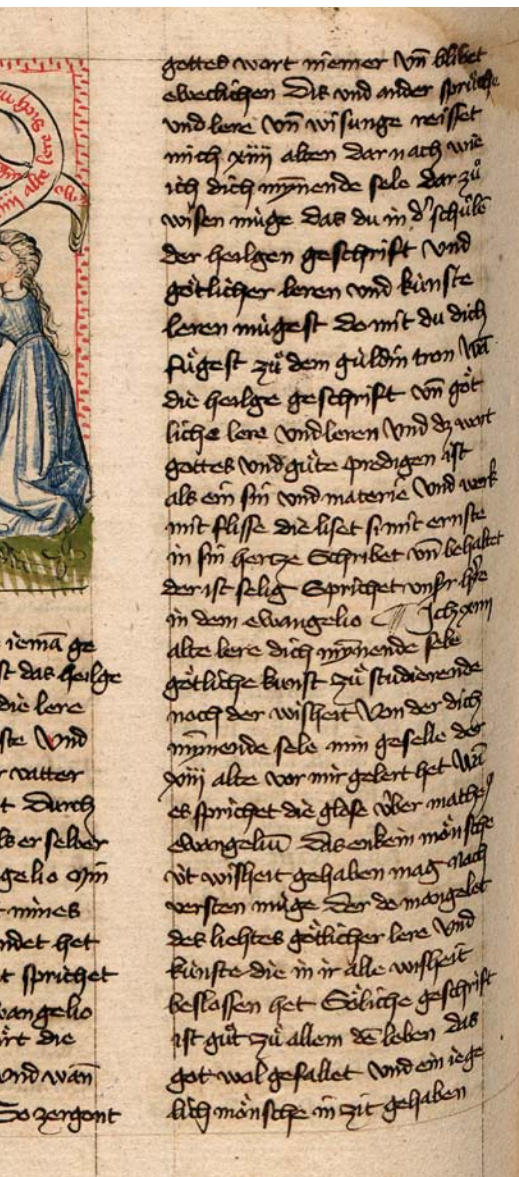 iemā ge
st das heilge
die lere
ste vnd
r vatter
t durch
ls er selber
gelio min
t mines
ndet het
t sprichet
wangelio
rt die
vnd wan̄
So zergont
gottes wort niemer vn̄ blibet
eweclichen Dis vnd ander sprúche
vnd lere vn̄ wisunge reisset
mich xiiij alten dar nach wie
ich dich mýnnende sele dar zů
wisen múge das du in d' schůle
der heilgen geschrift vnd
götlicher leren vnd kúnste
leren múgest do mit du dich
fůgest zů dem guldin tron wā
die heilge geschrift vn̄ göt
liche lere vnd leren vnd dz wort
gottes vnd gůte predigen ist
als ein sin vnd materie vnd werk
mit flisse die liset si mit ernste
in sin hertze Schribet vn̄ behaltet
der ist selig Sprichet vnser h're
in dem ewangelio Jch xiiij
alte lere dich mýnnende sele
götliche kunst zů studierende
noch der wisheit Von der dich
mýnnende sele min geselle der
xiij alte vor mir gelert het wā
es sprichet die glose v́ber mathe9
ewangeliū Das enkein mönsche
út wisheit gehaben mag noch
versten múge der do mangelet
des liehtes götlicher lere vnd
kúnste die in ir alle wisheit
beslossen het Söliche geschrift
ist gůt zů allem dē leben das
got wol gefallet vnd ein iege
lich mönsche in zit gehaben